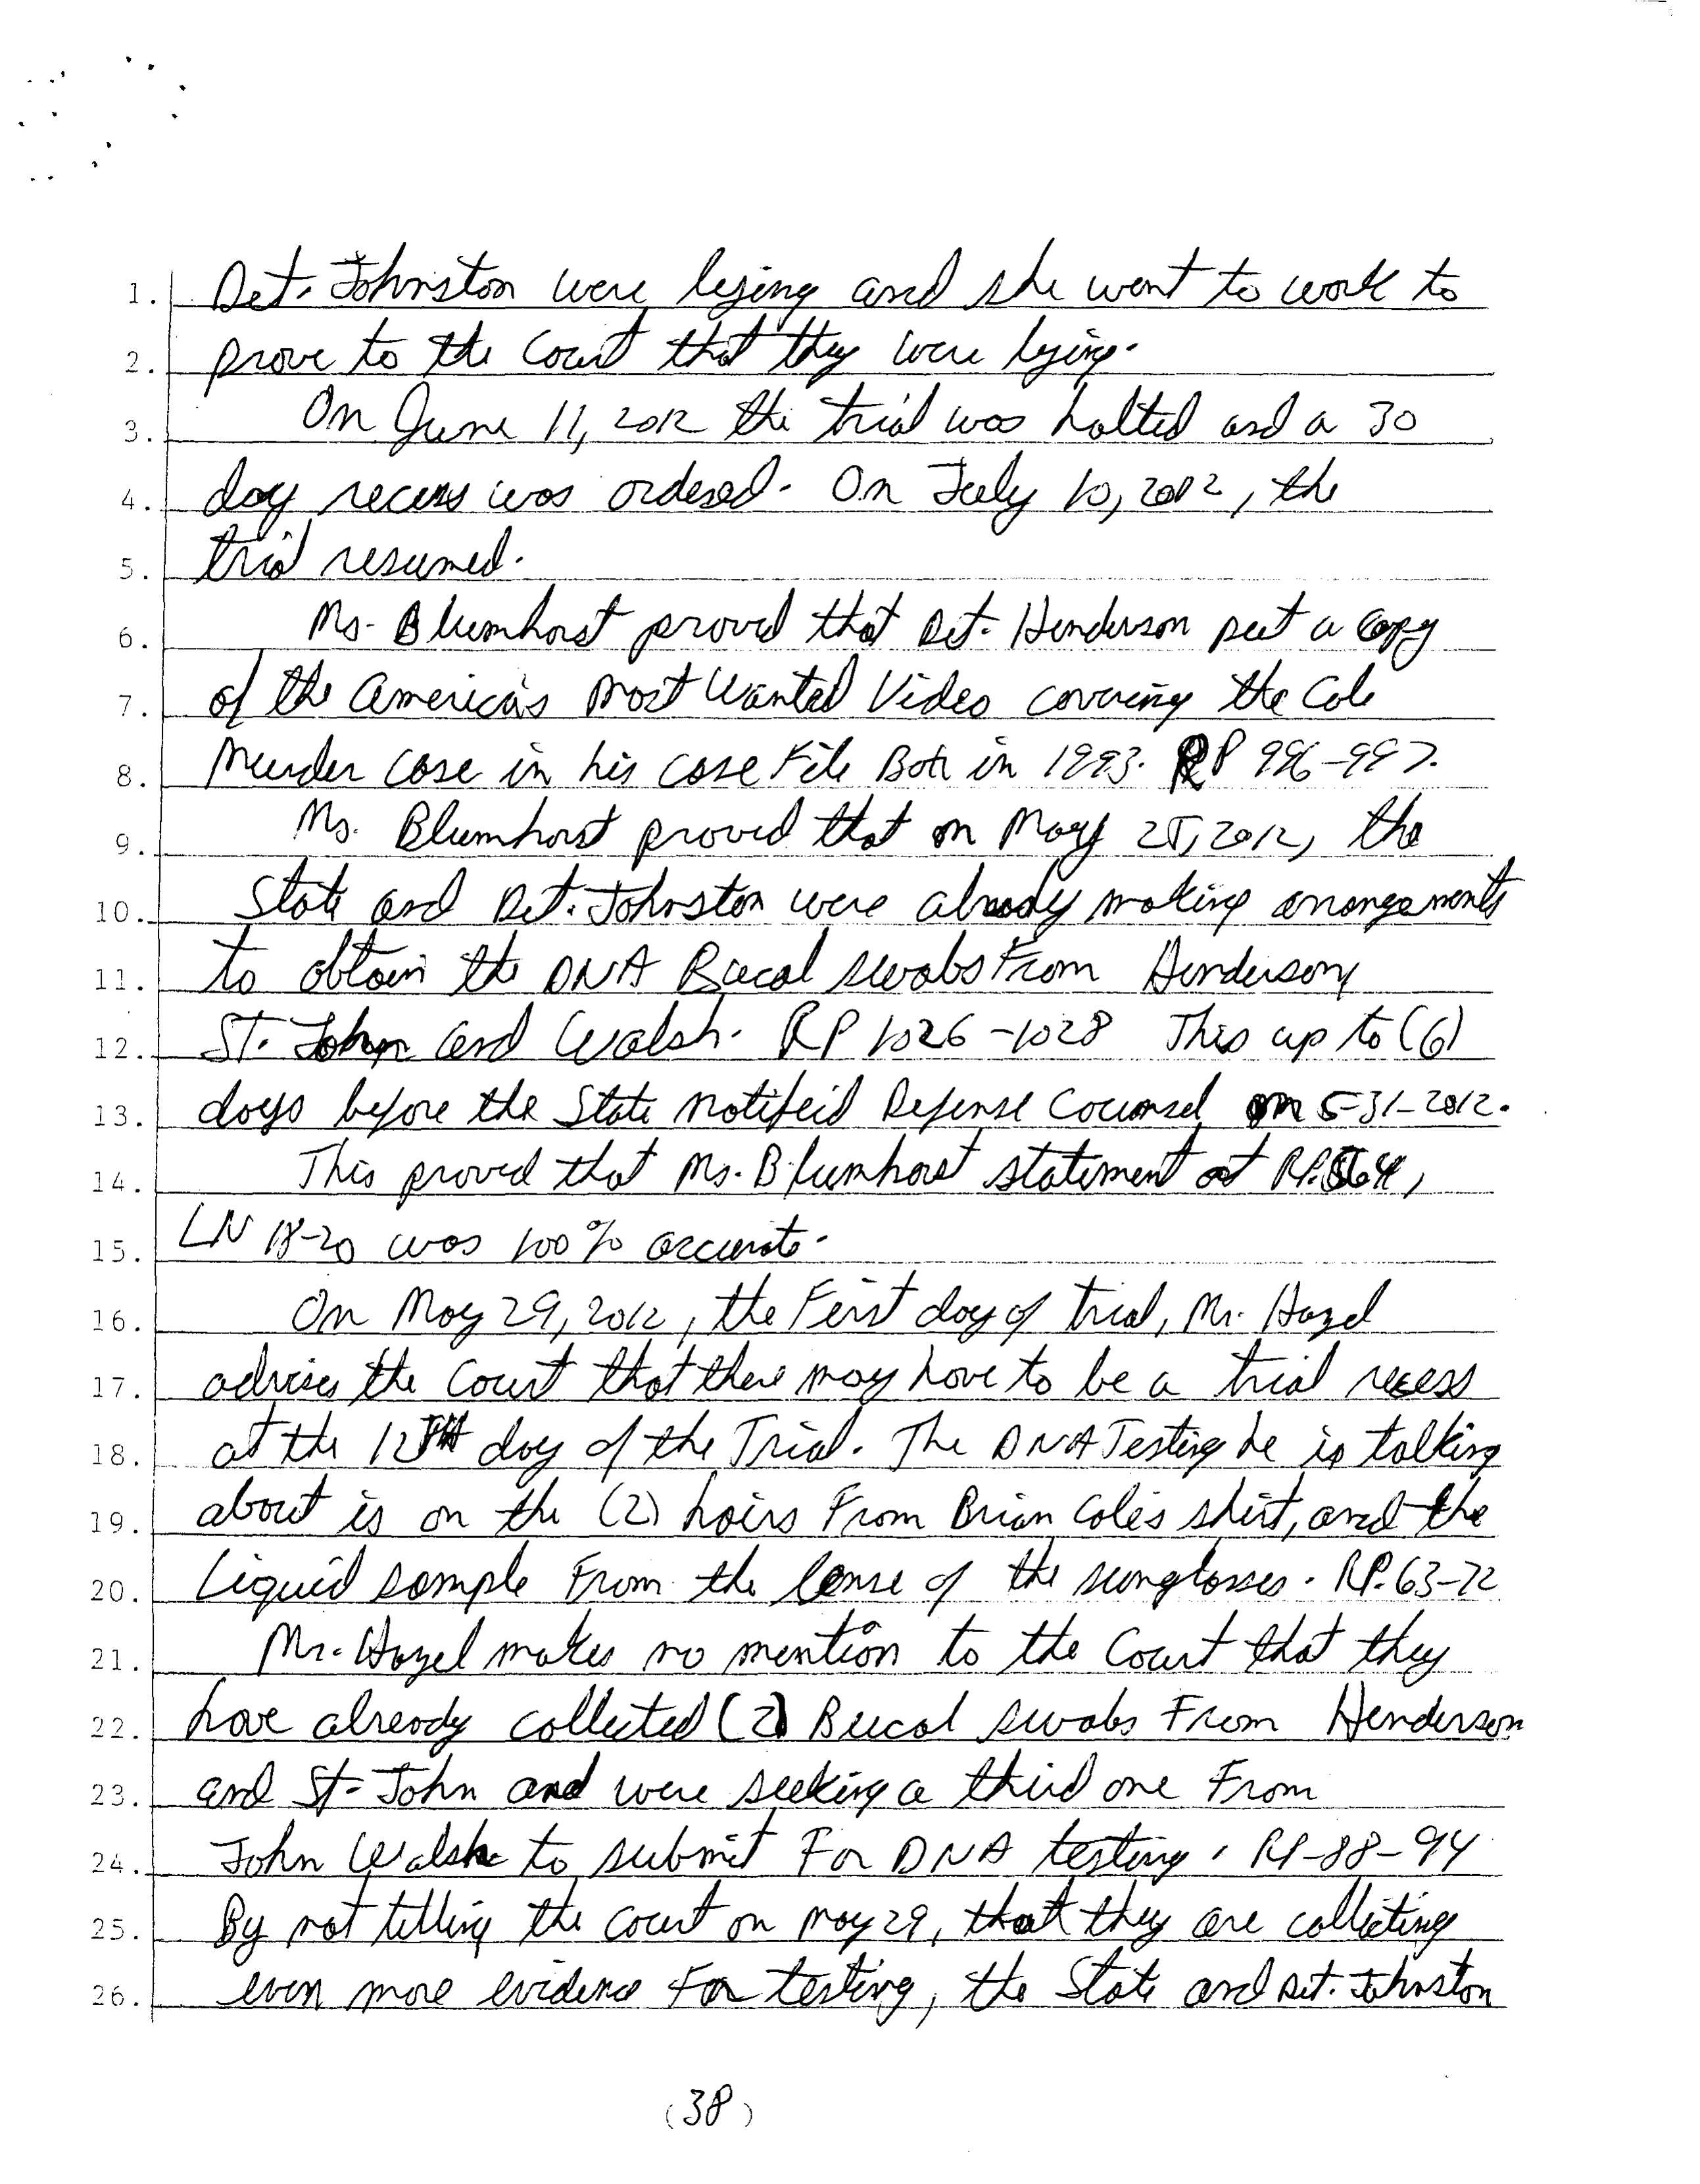 1. Det. Johnston were lying and she went to work to
2. prove to the Court that they were lying.
3. On June 11, 2012 the trial was halted and a 30
4. day recess was ordered. On July 10, 2012, the
5. trial resumed.
6. Ms. Blumhorst proved that Det. Henderson put a copy
7. of the America's Most Wanted Video covering the Cole
8. Murder case in his case File Box in 1993. RP 996-997.
9. Ms. Blumhorst proved that on May 25, 2012, the
10. State and Det. Johnston were already making arrangements
11. to obtain the DNA Bucal swabs From Henderson,
12. St. John and Walsh. RP 1026-1028 This up to (6)
13. days before the State notifeid Defense Counsel on 5-31-2012.
14. This proved that Ms. Blumhorst statement at RP. 564,
15. LN 18-20 was 100% accurate.
16. On May 29, 2012, the First day of trial, Mr. Hazel
17. advises the Court that there may have to be a trial recess
18. at the 12TH day of the Trial. The DNA Testing he is talking
19. about is on the (2) hairs From Brian Cole's shirt, and the
20. Liquid sample From the lense of the sunglasses. RP. 63-72
21. Mr. Hazel makes no mention to the Court that they
22. have already collected (2) Bucal swabs From Henderson
23. and St. John and were seeking a third one From
24. John Walsh to submit For DNA testing. RP-88-94
25. By not telling the court on May 29, that they are collecting
26. even more evidence For testing, the State and Det. Johnston
(38)